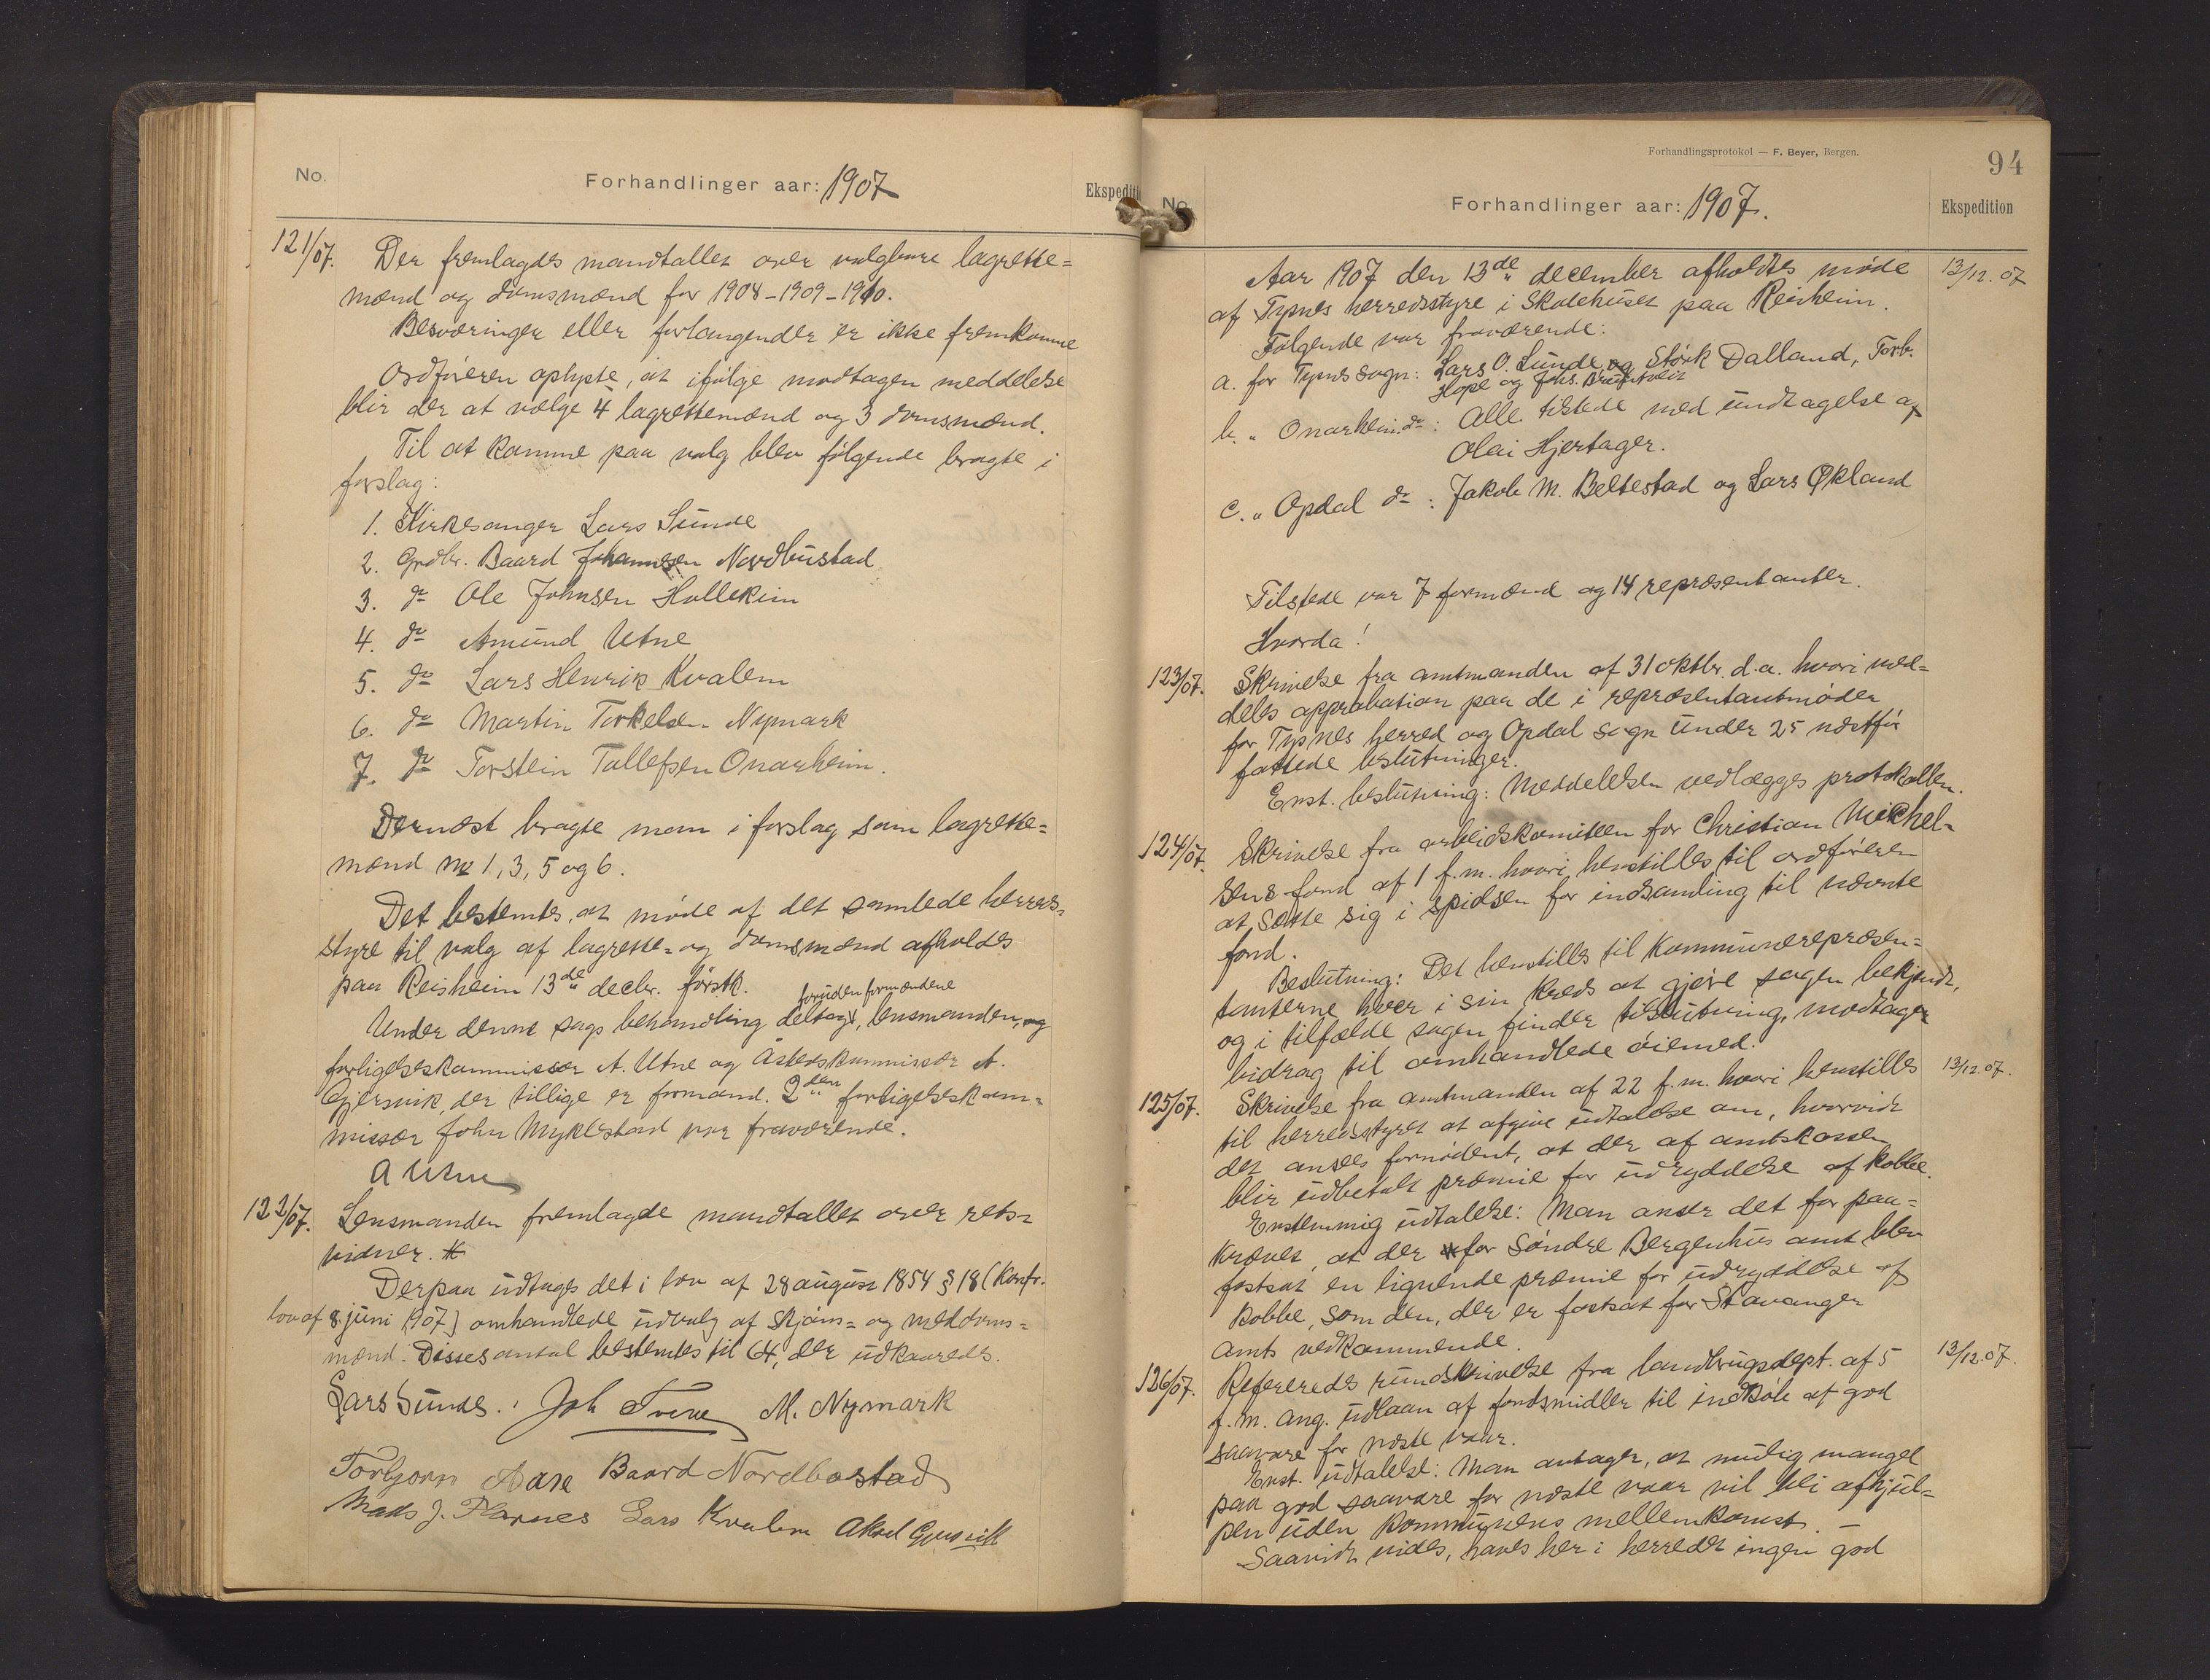 No.
Forhandlinger aar: 1907
Ekspediti
121/07. Der fremlagdes mandtallet over valgbare lagrette=
mænd og domsmænd for 1908-1909-1910.
Besværinger eller forlangender er ikke fremkomne
Ordføreren oplyste, at ifølge modtagen meddelelse
blir der at vælge 4 lagrettemænd og 3 domsmænd.
Til at komme paa valg blev følgende bragte i
forslag:
1. Kirkesanger Lars Sunde
2. Grdbr. Baard Johannesen Nordbustad
3. do Ole Johnsen Hollekim
4. do Amund Utne
5. do Lars Henrik Kvalem
6. do Martin Torkelsen Nymark
7. do Torstein Tollefsen Onarheim.
Dernæst bragte man i forslag som lagrette=
mænd nr 1, 3, 5 og 6.
Det bestemtes, at møde af det samlede herreds=
styre til valg af lagrette= og domsmænd afholdes
paa Reisheim 13de decbr. førstk.
foruden formændene
Under denne sags behandling deltog, lensmanden, og
forligelseskommissær A. Utne og Åstedskommissær A.
Gjersvik, der tillige er formand. 2den forligelseskom=
missær John Myklestad var fraværende.
A Utne
122/07. Lensmanden fremlagde mandtallet over rets=
vidner.
Derpaa udtoges det i lov af 28 august 1854 § 18 (Konfr.
lov af 8 juni 1907) omhandlede udvalg af skjøns= og meddoms=
mænd. Disses antal bestemtes til 64, der udkaaredes.
Lars Sunde. Joh Tvene M. Nymark
Torbjørn Aase Baard Nordbostad
Mads J. Flornes Lars Kvalem Aksel Gjersvik
Forhandlingsprotokol — F. Beyer, Bergen.
94
No.
Forhandlinger aar: 1907.
Ekspedition
Aar 1907 den 13de december afholdtes møde 13/12.07
af Tysnes herredsstyre i Skolehuset paa Reisheim.
Følgende var fraværende:
a. for Tysnes sogn: Lars O. Sunde, og Størk Dalland, Torb.
Hope og Johs.
b. " Onarheim do: Alle tilstede med undtagelse af
Olai Hjertager.
c. " Opdal do: Jakob M. Beltestad og Lars Økland
Tilstede var 7 formænd og 14 repræsentanter.
Hvorda!
123/07. Skrivelse fra amtmanden af 31 oktbr. d.a. hvori med=
deles approbation paa de i repræsentantmøder
for Tysnes herred og Opdal sogn under 25 næstfør
fattede beslutninger.
Enst. beslutning: Meddelelsen vedlægges protokollen.
124/07. Skrivelse fra arbeidskomiteen for Christian Michel=
sens fond af 1 f.m. hvori henstilles til ordføreren
at sætte sig i spidsen for indsamling til nævnte
fond.
Beslutning: Det henstilles til Kommunerepræsen=
tanterne hver i sin kreds at gjøre sagen bekjendt,
og i tilfælde sagen finder tilslutning, modtager
bidrag til omhandlede øiemed.
125/07. Skrivelse fra amtmanden af 22 f.m. hvori henstilles 13/12.07.
til herredsstyret at afgive udtalelse om, hvorvidt
det ansees fornødent, at der af amtskassen
blir udbetalt præmie for udryddelse af kobbe.
Enstemmig udtalelse: Man anser det for paa=
krævet, at der for Søndre Bergenhus amt blev
fastsat en lignende præmie for udryddelse af
kobbe, som den, der er fastsat for Stavanger
amts vedkommende.
126/07. Refereredes rundskrivelse fra landbrugsdept. af 5 13/12.07.
f.m. ang. udlaan af fondsmidler til indkjøb af god
saavare for næste vaar.
Enst. udtalelse: Man antager, at mulig mangel
paa god saavare for næste vaar vil bli afhjul=
pen uden kommunens mellemkomst.
Saavidt vides, haves her i herredet ingen god